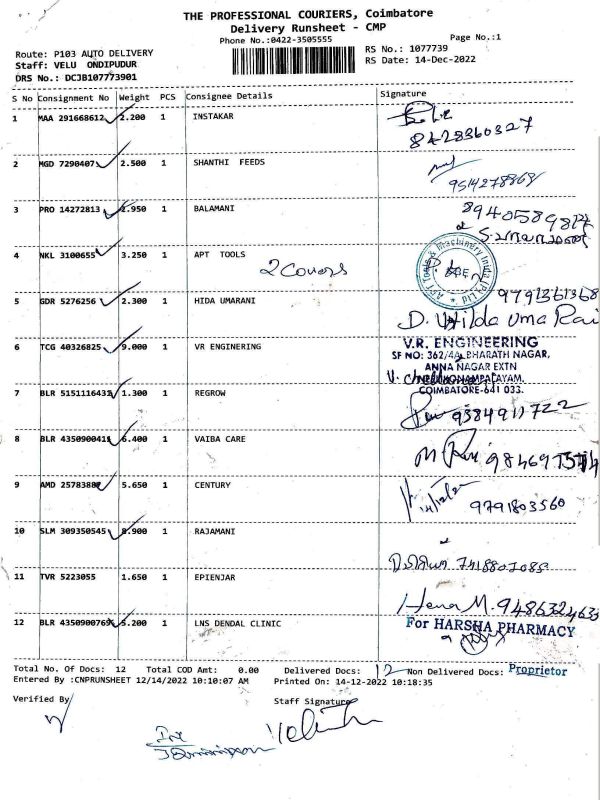 THE PROFESSIONAL COURIERS, Coimbatore
Delivery Runsheet - CMP
Phone No.:0422-3505555
Page No.:1
Route: P103 AUTO DELIVERY
RS No.: 1077739
Staff: VELU ONDIPUDUR
RS Date: 14-Dec-2022
DRS No.: DCJB107773901
S No Consignment No Weight PCS Consignee Details Signature
1 MAA 291668612 2.200 1 INSTAKAR
8428360327
2 MGD 7290407 2.500 1 SHANTHI FEEDS
3 PRO 14272813 2.950 1 BALAMANI
4 NKL 3100655 3.250 1 APT TOOLS
2 Covers
APT Tools & Machinery India (P) Ltd
CBE
9791361368
5 GDR 5276256 2.300 1 HIDA UMARANI
D. Hilda Uma Rani
6 TCG 40326825 9.000 1 VR ENGINERING
V.R. ENGINEERING
SF NO: 362/4A, BHARATH NAGAR,
ANNA NAGAR EXTN
NEELIKONAMPALAYAM,
COIMBATORE-641 033.
7 BLR 5151116432 1.300 1 REGROW
9384911722
8 BLR 4350900411 6.400 1 VAIBA CARE
9 AMD 25783887 5.650 1 CENTURY
14/12/22
9791803560
10 SLM 309350545 8.900 1 RAJAMANI
7418807085
11 TVR 5223055 1.650 1 EPIENJAR
Hema M. 9486324633
12 BLR 435090076 5.200 1 LNS DENDAL CLINIC
For HARSHA PHARMACY
Proprietor
Total No. Of Docs: 12 Total COD Amt: 0.00 Delivered Docs: 12 Non Delivered Docs:
Entered By :CNPRUNSHEET 12/14/2022 10:10:07 AM Printed On: 14-12-2022 10:18:35
Verified By
Staff Signature